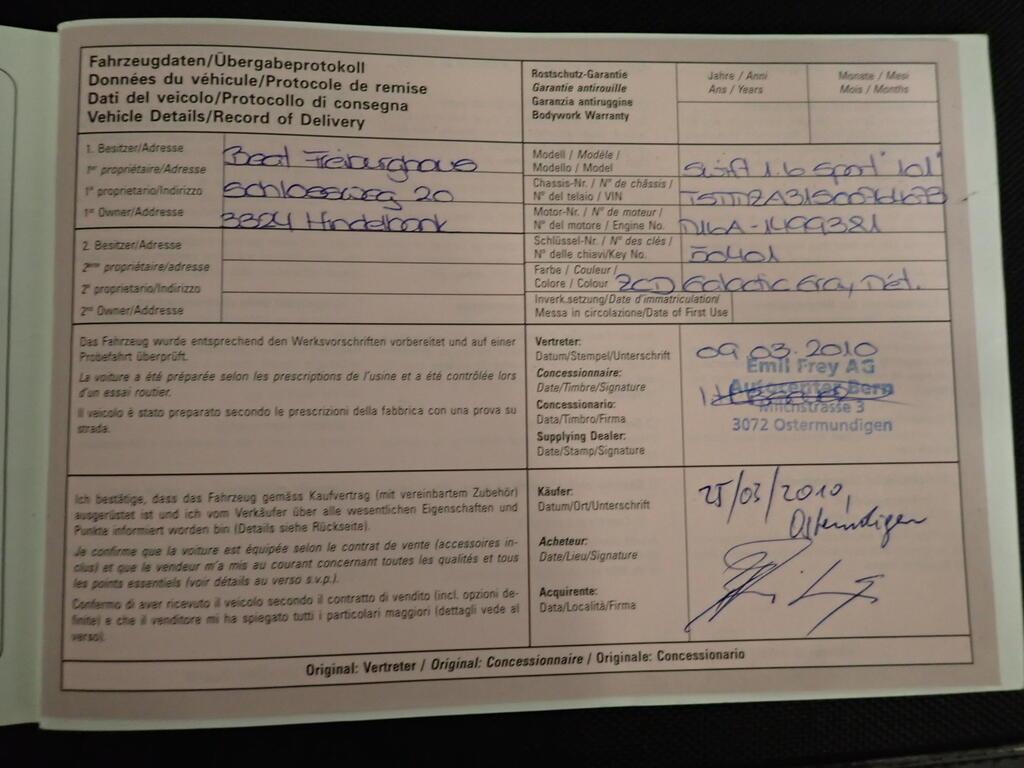 Fahrzeugdaten/Übergabeprotokoll
Données du véhicule/Protocole de remise
Dati del veicolo/Protocollo di consegna
Vehicle Details/Record of Delivery
Rostschutz-Garantie
Garantie antirouille
Garanzia antiruggine
Bodywork Warranty
Jahre / Anni
Ans / Years
Monate / Mesi
Mois / Months
1. Besitzer/Adresse
1er propriétaire/Adresse
1° proprietario/Indirizzo
1st Owner/Address
Beat Freiburghaus
Schlossweg 20
3324 Hindelbank
2. Besitzer/Adresse
2ème propriétaire/adresse
2° proprietario/Indirizzo
2nd Owner/Address
Modell / Modèle /
Modello / Model
Swift 1.6 Sport "101"
Chassis-Nr. / N° de châssis /
N° del telaio / VIN
Motor-Nr. / N° de moteur /
N° del motore / Engine No.
M16A-1499381
Schlüssel-Nr. / N° des clés /
N° delle chiavi/Key No.
50401
Farbe / Couleur /
Colore / Colour
ZCD Galactic Gray Mét.
Inverk.setzung/Date d'immatriculation/
Messa in circolazione/Date of First Use
Das Fahrzeug wurde entsprechend den Werksvorschriften vorbereitet und auf einer
Probefahrt überprüft.
La voiture a été préparée selon les prescriptions de l'usine et a été contrôlée lors
d'un essai routier.
Il veicolo è stato preparato secondo le prescrizioni della fabbrica con una prova su
strada.
Vertreter:
Datum/Stempel/Unterschrift
Concessionnaire:
Date/Timbre/Signature
Concessionario:
Data/Timbro/Firma
Supplying Dealer:
Date/Stamp/Signature
09.03.2010
Emil Frey AG
Autocenter Bern
Milchstrasse 3
3072 Ostermundigen
Ich bestätige, dass das Fahrzeug gemäss Kaufvertrag (mit vereinbartem Zubehör)
ausgerüstet ist und ich vom Verkäufer über alle wesentlichen Eigenschaften und
Punkte informiert worden bin (Details siehe Rückseite).
Je confirme que la voiture est équipée selon le contrat de vente (accessoires in-
clus) et que le vendeur m'a mis au courant concernant toutes les qualités et tous
les points essentiels (voir détails au verso s.v.p.).
Confermo di aver ricevuto il veicolo secondo il contratto di vendito (incl. opzioni de-
finite) e che il venditore mi ha spiegato tutti i particolari maggiori (dettagli vede al
verso).
Käufer:
Datum/Ort/Unterschrift
Acheteur:
Date/Lieu/Signature
Acquirente:
Data/Località/Firma
25/03/2010,
Ostermundigen
Original: Vertreter / Original: Concessionnaire / Originale: Concessionario